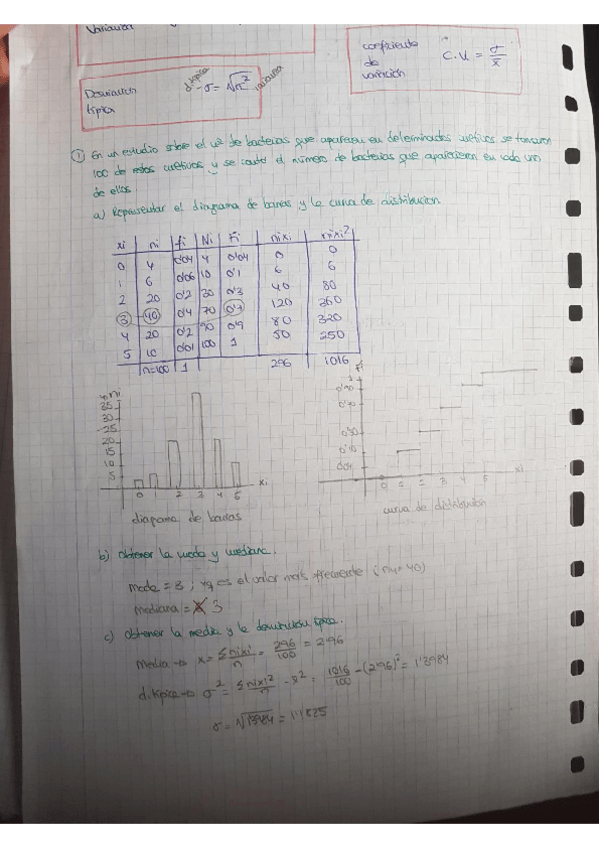 Varianza
Desviación
típica
d.típica → σ = √n² varianza
coeficiente
de
variación
C.V = σ/x̄
① En un estudio sobre el nº de bacterias que aparecen en determinados cultivos se tomaron
100 de estos cultivos y se contó el número de bacterias que aparecieron en cada uno
de ellos
a) Representar el diagrama de barras y la curva de distribución
xi ni fi Ni Fi nixi nixi²
0 4 0'04 4 0'04 0 0
1 6 0'06 10 0'1 6 6
2 20 0'2 30 0'3 40 80
3 40 0'4 70 0'7 120 360
4 20 0'2 90 0'9 80 320
5 10 0'01 100 1 50 250
n=100 1 296 1016
ni
35
30
25
20
15
10
5
0 1 2 3 4 5 xi
diagrama de barras
Fi
1
0'90
0'70
0'30
0'10
0'04
0 1 2 3 4 5 xi
curva de distribución
b) Obtener la moda y mediana.
moda = 3 ; yq es el valor más frecuente (n4 = 40)
Mediana = 3
c) Obtener la media y la desviación típica.
Media → x = Σnixi/n = 296/100 = 2'96
d.típica → σ² = Σnixi²/n - x̄² = 1016/100 - (2'96)² = 1'3984
σ = √1'3984 = 1'1825